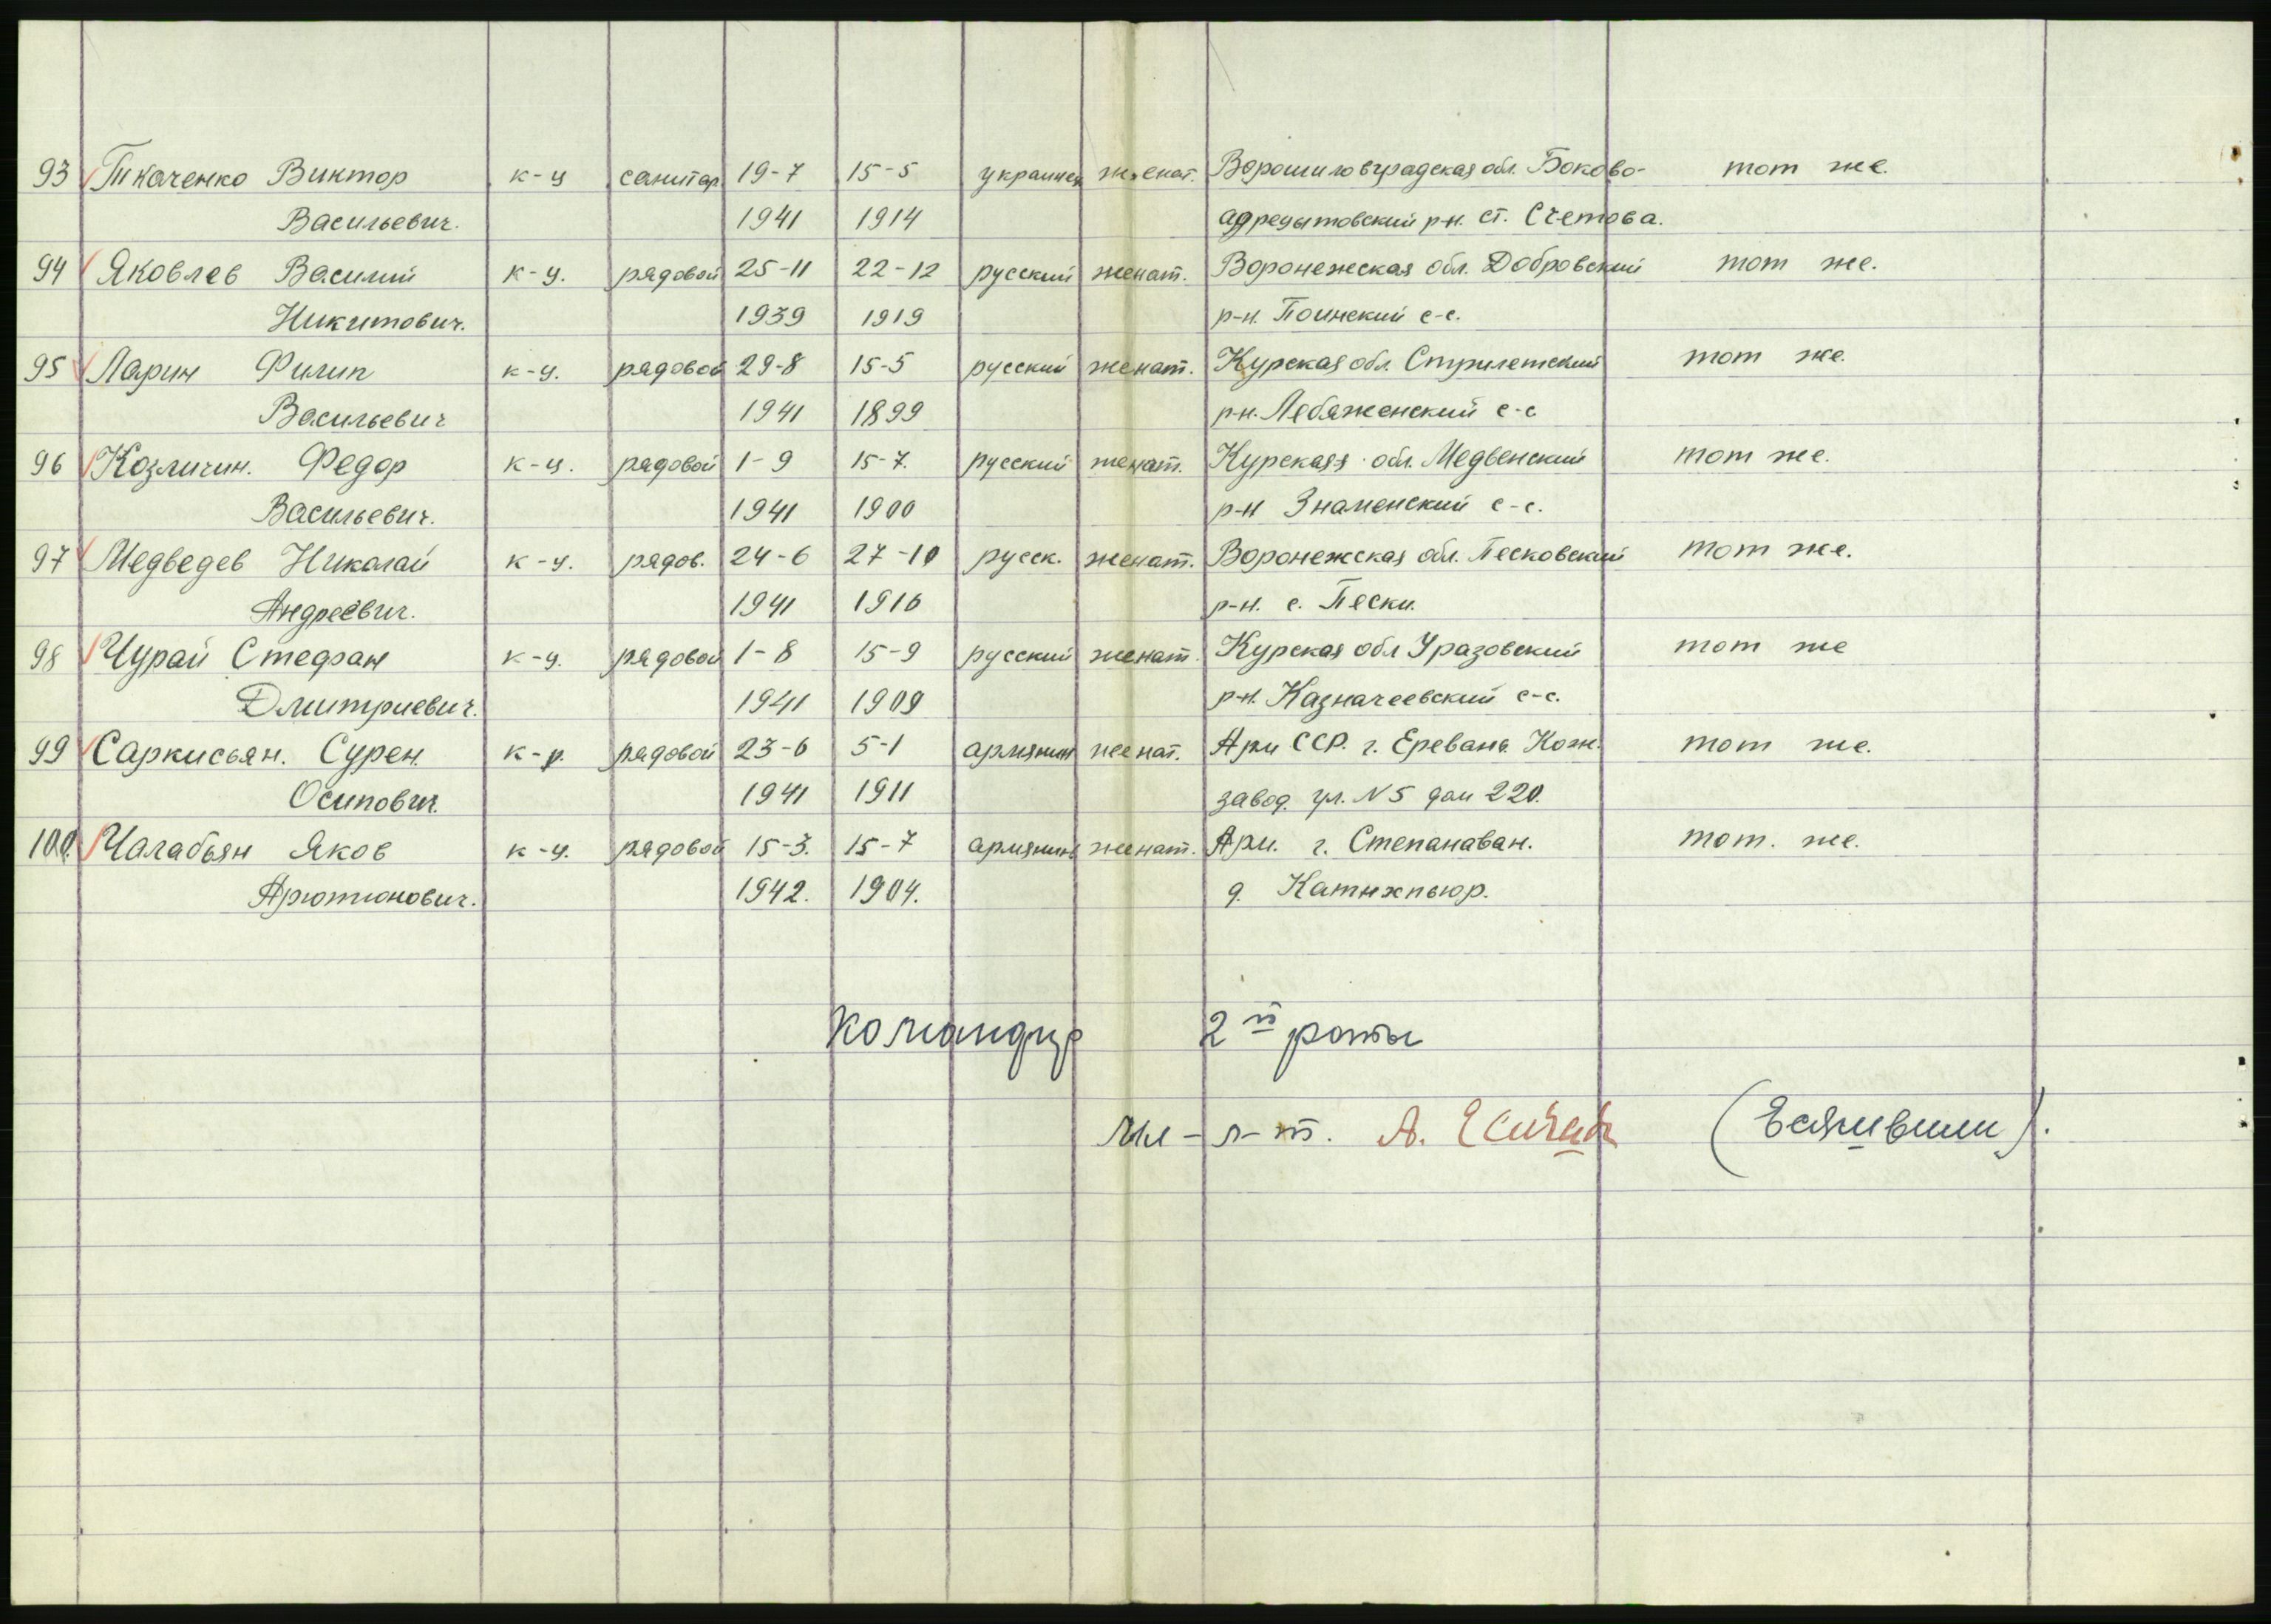 93 Ткаченко Виктор к-ц санитар 19-7 15-5 украинец женат. Ворошиловградская обл. Боково- тот же.
Васильевич. 1941 1914 р-н. ст. Счетова.
94 Яковлев Василий к-ц. рядовой 25-11 22-12 русский женат. Воронежская обл. Добровский тот же.
Никитович. 1939 1919 р-н. Поинский с-с.
95 Ларин Филип к-ц. рядовой 29-8 15-5 русский женат. Курская обл. Стрилетский тот же.
Васильевич 1941 1899 р-н. Лебяженский с-с
96 Козличин. Федор к-ц. рядовой 1-9 15-7. русский женат. Курская обл. Медвенский тот же.
Васильевич. 1941 1900 р-н Знаменский с-с.
97 Медведев Николай к-ц. рядов. 24-6 27-10 русск. женат. Воронежская обл. Песковский тот же.
Андреевич. 1941 1916 р-н. с. Пески.
98 Чурай Стефан к-ц. рядовой 1-8 15-9 русский женат. Курская обл Уразовский тот же
Дмитриевич. 1941 1909 р-н. Казначеевский с-с.
99 Саркисьян. Сурен. к-р. рядовой 23-6 5-1 армянин женат. Арм ССР. г. Еревана Кож. тот же.
Осипович. 1941 1911 завод. ул. N5 дом 220.
100. Чалабьян Яков к-ц. рядовой 15-3. 15-7 армянин женат. Арм. г. Степанаван. тот. же.
Арютюнович. 1942. 1904. д. Катнхпьюр.
Командир 2й роты
мл-л-т. А.